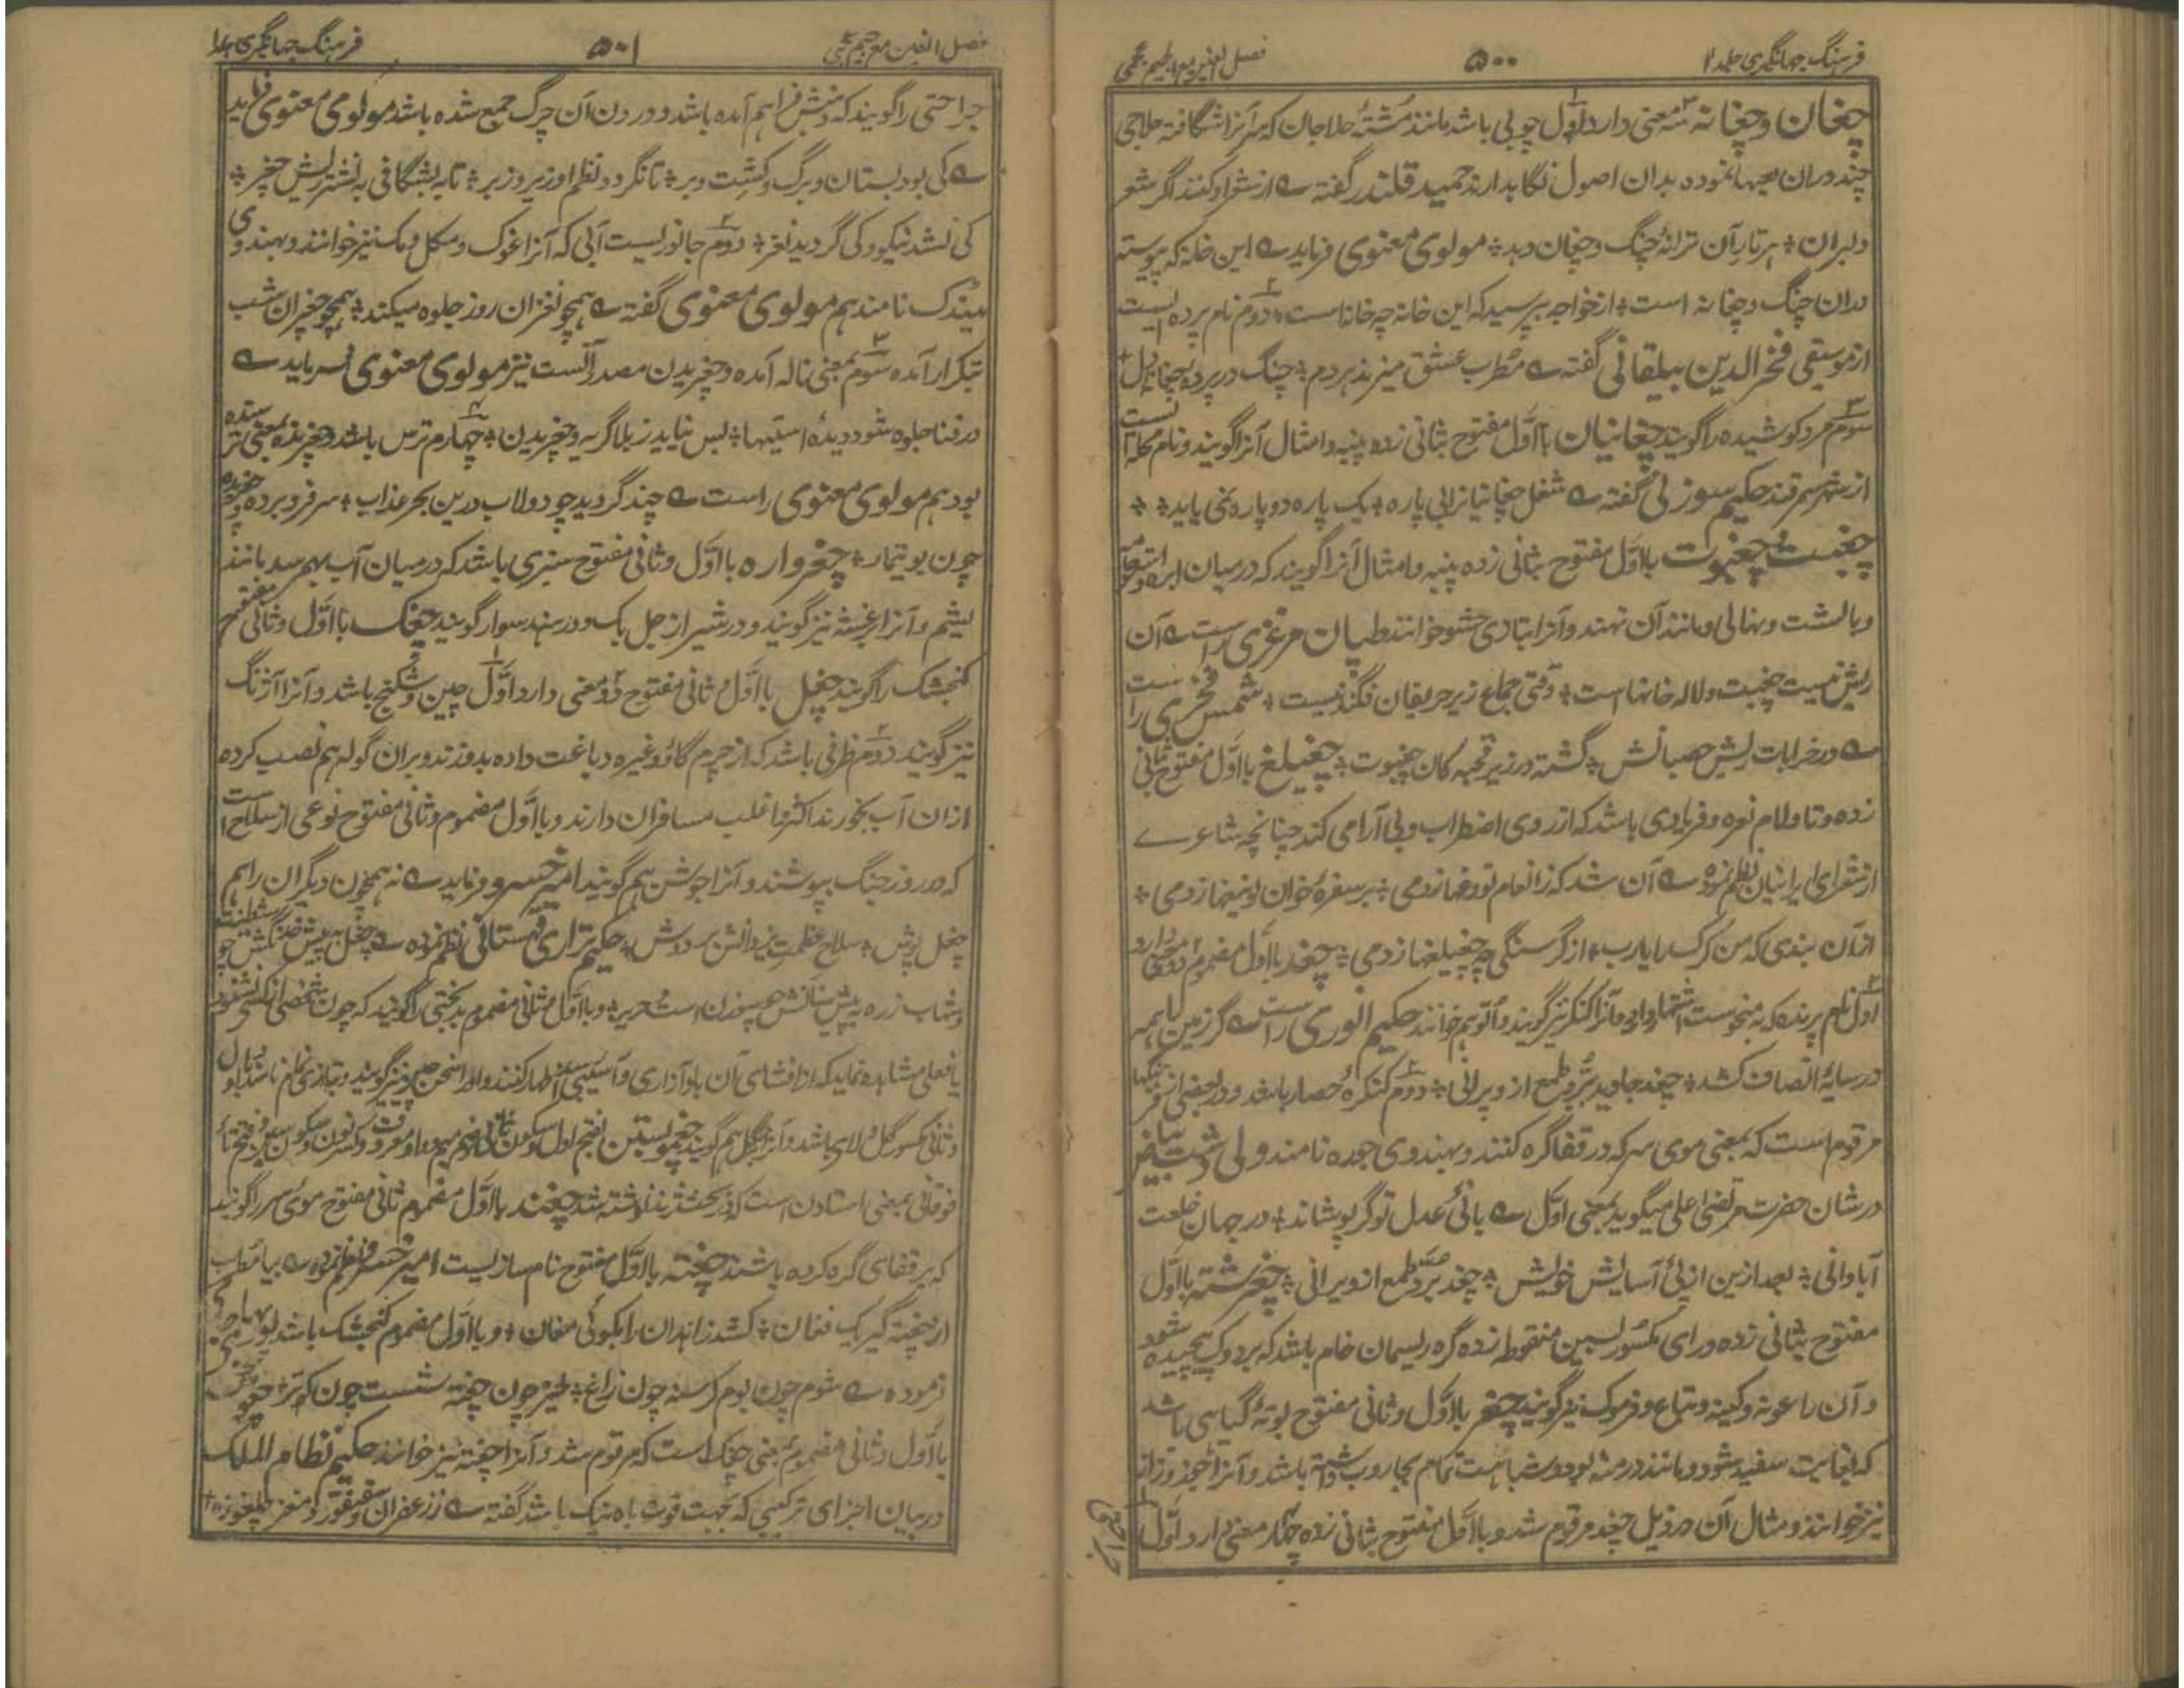 فرهنگ جهانگیری جلد ۲
۵۰۰
فصل الغین مع الجیم عجمی
چغان وچغانه سه معنی دارد اول چوبی باشد مانند مشتهٔ حلاجان که سر آنرا شگافته جلاجلی
چند دران تعبیه نموده بدان اصول نگاه بدارند حمید قلندر گفته ے از شعر او کنند اگر شعر
دلبران ٭ هر تار آن ترانهٔ چنگ وچغان دهد ٭ مولوی معنوی فرماید ے این خانه که پیوسته
دران چنگ وچغانه است ٭ از خواجه بپرسید که این خانه چه خانه است ٭ دوم نام پرده ایست
از موسیقی فخرالدین بیلقانی گفته ے مطرب عشق میزند هردم ٭ چنگ در پردهٔ چغانهٔ دل ٭
سوم مرد کوشیده را گویند چغانیان با اول مفتوح بثانی زده پنبه وامثال آنرا گویند ونام محله ایست
از شهر سمرقند حکیم سوزنی گفته ے شغل چغانیانرا بی پاره ٭ یک پاره دو پاره نمی یابد ٭ ٭
چغبت چغبوت با اول مفتوح بثانی زده پنبه وامثال آنرا گویند که درمیان ابره و
وبالشت ونهالی ومانند آن نهند وآنرا بتازی حشو خوانند طیان مرغزی راست ے آن
ریش نیست چغبت ولاله خانهاست ٭ وقتی جماع زیر حریفان فگندنیست ٭ شمس فخری راست
ے در خرابات ریش خصمانش ٭ گشته در زیر قحبه کان چغبوت ٭ چغبلغ با اول مفتوح بثانی
زده وتا ولام نعره وفریادی باشد که از روی اضطراب وبی آرامی کند چنانچه شاعرے
از شعرای ایرانیان نظم نموده ے آن شد که ز انعام تو دمها زدمی ٭ بر سفرهٔ خوان لونیها زدمی ٭
ازان بندی که من کرک را یارب ٭ از گرسنگی چه چغبلغها زدمی ٭ چغد با اول مضموم دو معنی دارد
اول نام پرنده که به نحوست اشتهار دارد وآنرا کنگر نیز گویند والو هم خوانند حکیم انوری راست ے گر زمین را همه
در سایهٔ انصاف کشد ٭ چغد جاوید ببرد طمع از ویرانی ٭ دوم کنگرهٔ حصار باشد ودر بعضی از فرهنگها
مرقوم است که بمعنی موی سر که در قفا گره کنند وبهندوی جوره نامند ولی دشت بیاض
در شان حضرت مرتضی علی میگوید بمعنی اول ے بانی عدل تو گر پوشاند ٭ در جهان خلعت
آبادانی ٭ بعد ازین از پی آسایش خویش ٭ چغد ببرد طمع از ویرانی ٭ چغرشته با اول
مفتوح بثانی زده ورای مکسور بسین منقوطه زده گره ریسمان خام باشد که بر دوک پیچیده شود
وآن را غونه وکینه وتباع وفرموک نیز گویند چغز با اول وثانی مفتوح بوتهٔ گیاهی باشد
که بغایت سفید شود ومانند درمنه بود وشباهت تمام بجاروب داشته باشد وآنرا
نیز خوانند ومثال آن در ذیل چغد مرقوم شد وبا اول مفتوح بثانی زده چهار معنی دارد اول
جراحتی
فصل الغین مع جیم عجمی
۵۰۱
فرهنگ جهانگیری
جراحتی را گویند که دهنش فراهم آمده باشد ودر درون آن چرک جمع شده باشد مولوی معنوی فرماید
ے کی بود بستان وبرگ وکشت وبر ٭ تا نگردد نظم او زیر وزبر ٭ تا نه بشگافی به نشتر ریش چغز ٭
کی شد نیکو وکی گردید نغز ٭ دوم جانوریست آبی که آنرا غوک ومکل وبک نیز خوانند وبهندوی
میندک نامند هم مولوی معنوی گفته ے همچو نغزان روز جلوه میکند ٭ همچو چغزان شب
تکرار آمده سوم بمعنی ناله آمده وچغزیدن مصدر آنست نیز مولوی معنوی فرماید ے
در فنا جلوه شود دیدهٔ استیها ٭ پس نباید ز بلا گریه وچغزیدن ٭ چهارم ترس باشد وچغزنده بمعنی ترسنده
بود هم مولوی معنوی راست ے چند گردید چو دولاب درین بحر عذاب ٭ سر فرو برده
چون بوتیمار ٭ چغزواره با اول وثانی مفتوح سبزی باشد که درمیان آب بهم رسد مانند
پشم وآنرا بزغسمه نیز گویند ودر شیراز جل بک ودر هند سوار گویند چغک با اول وثانی مفتوح
کنجشک را گویند چغل با اول وثانی مفتوح دو معنی دارد اول چین وشکنج باشد وآنرا آژنگ
نیز گویند دوم ظرفی باشد که از چرم گاو وغیره دباغت داده بدوزند وبران گوله هم نصب کرده
ازان آب بخورند اکثر واغلب مسافران دارند وبا اول مضموم وثانی مفتوح نوعی از سلاح است
که در روز جنگ بپوشند وآنرا جوشن هم گویند امیرخسرو فرماید ے نه همچون دیگران را هم
چغل پوش ٭ سلاح عظمت یزدانش بر دوش ٭ حکیم نزاری قهستانی نظم نموده ے چغل پیش
وشهاب زره پیش سنانش همچو سوزن است وحریر ٭ وبا اول وثانی مضموم بدبختی را گویند که چون شخصی
یا فعلی مشاهده نماید که از افشای آن باو آزاری وآسیبی رسد اظهار کنند واو را سخن چین نیز گویند وبتازی نمام نامند وبا اول
وثانی مکسور گل ولای باشد وآنرا چگل هم گویند چغموستین بفتح اول وسکون ثانی وضم میم وواو معروف وکسر نون وسکون سین وفتح تای
فوقانی بمعنی استادن است که در بحث ژند نوشته شد چغند با اول مضموم وثانی مفتوح موی سر را گویند
که بر قفای گره کرده باشند چغنه با اول مفتوح نام سازیست امیر خسرو نظم نموده ے بیا مطرب
از چغنه گیر یک فغان ٭ کشد زاهدان را بکوی مغان ٭ وبا اول مضموم کنجشک باشد
فرموده ے شوم چون بوم گرسنه چون زاغ ٭ طیر چون چغنه شست چون کوتر ٭ چغو
با اول وثانی مضموم بمعنی چغک است که مرقوم شد وآنرا چغنه نیز خوانند حکیم نظام الملک
در بیان اجزای ترکیبی که بجهت قوت باه نیک باشد گفته ے ز زعفران وسقنقور ومغز چلغوزه ٭